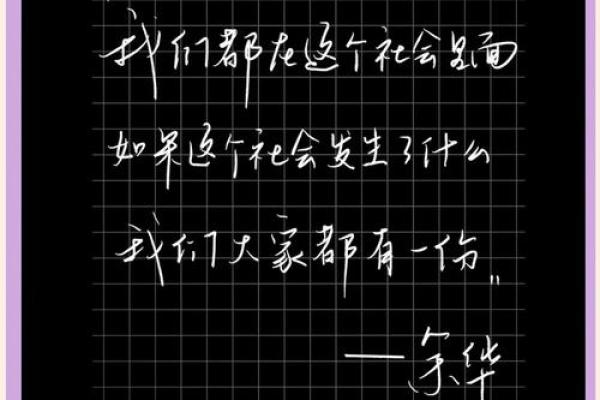 我们都在这个社会里面
如果这个社会发生了什么
我们大家都有一份”
——余华